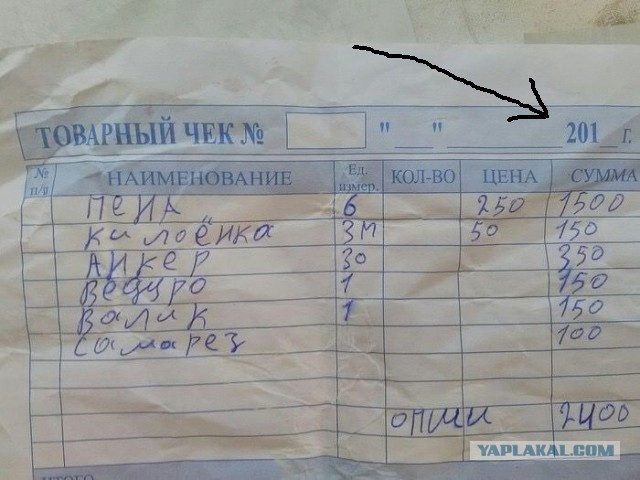 ТОВАРНЫЙ ЧЕК № " " 201 г.
№ п/п НАИМЕНОВАНИЕ Ед. измер. КОЛ-ВО ЦЕНА СУММА
ПЕНА 6 250 1500
килоёнка 3м 50 150
АНКЕР 30 350
ведцро 1 150
валик 1 150
самарез 100
опши 2400
ИТОГО
YAPLAKAL.COM